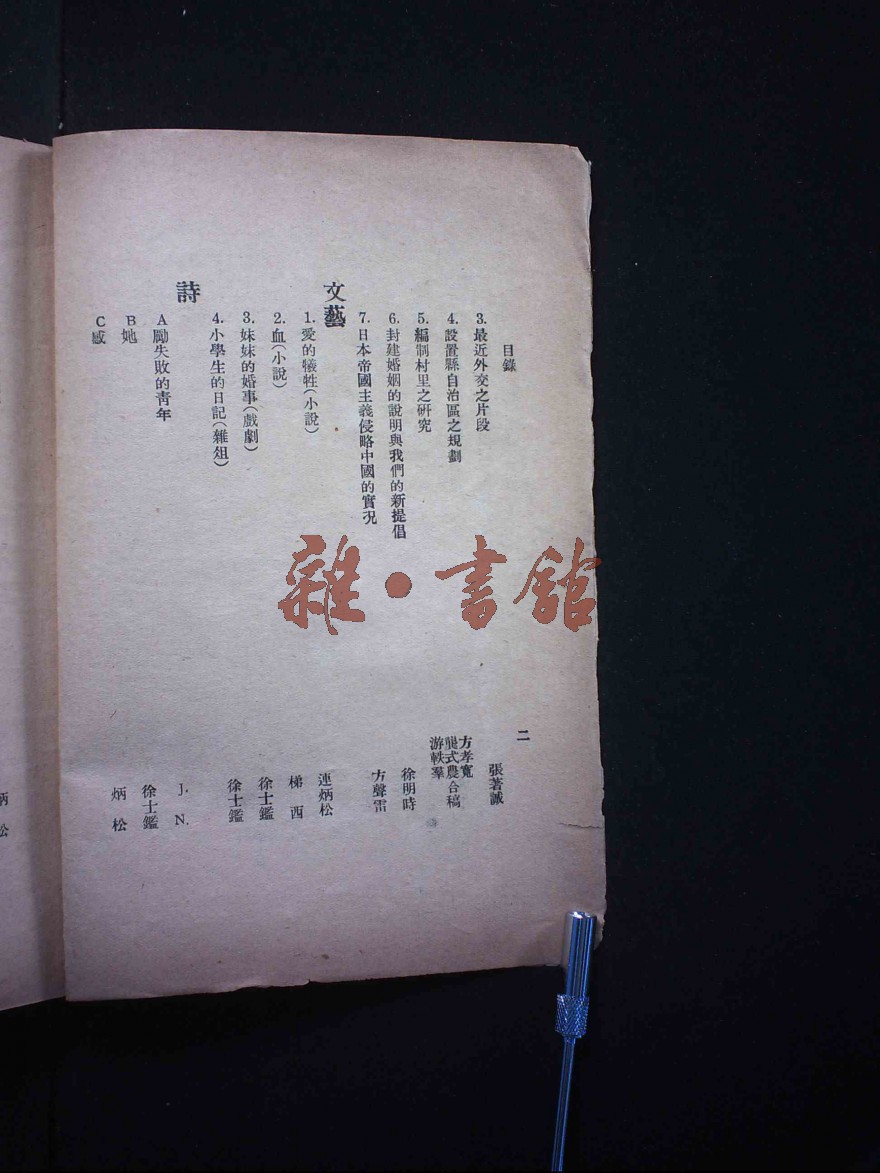 目錄 二
3. 最近外交之片段 張著誠
4. 設置縣自治區之規劃
5. 編制村里之研究
方孝寬
襲式農合稿
游軼羣
6. 封建婚姻的說明與我們的新提倡 徐明時
7. 日本帝國主義侵略中國的實況 方聲雷
文藝
1. 愛的犧牲(小說) 連炳松
2. 血(小說) 梯西
3. 妹妹的婚事(戲劇) 徐士鑑
4. 小學生的日記(雜俎) 徐士鑑
詩
A 勵失敗的青年 J. N.
B 她 徐士鑑
C 感 炳松
雜·書館